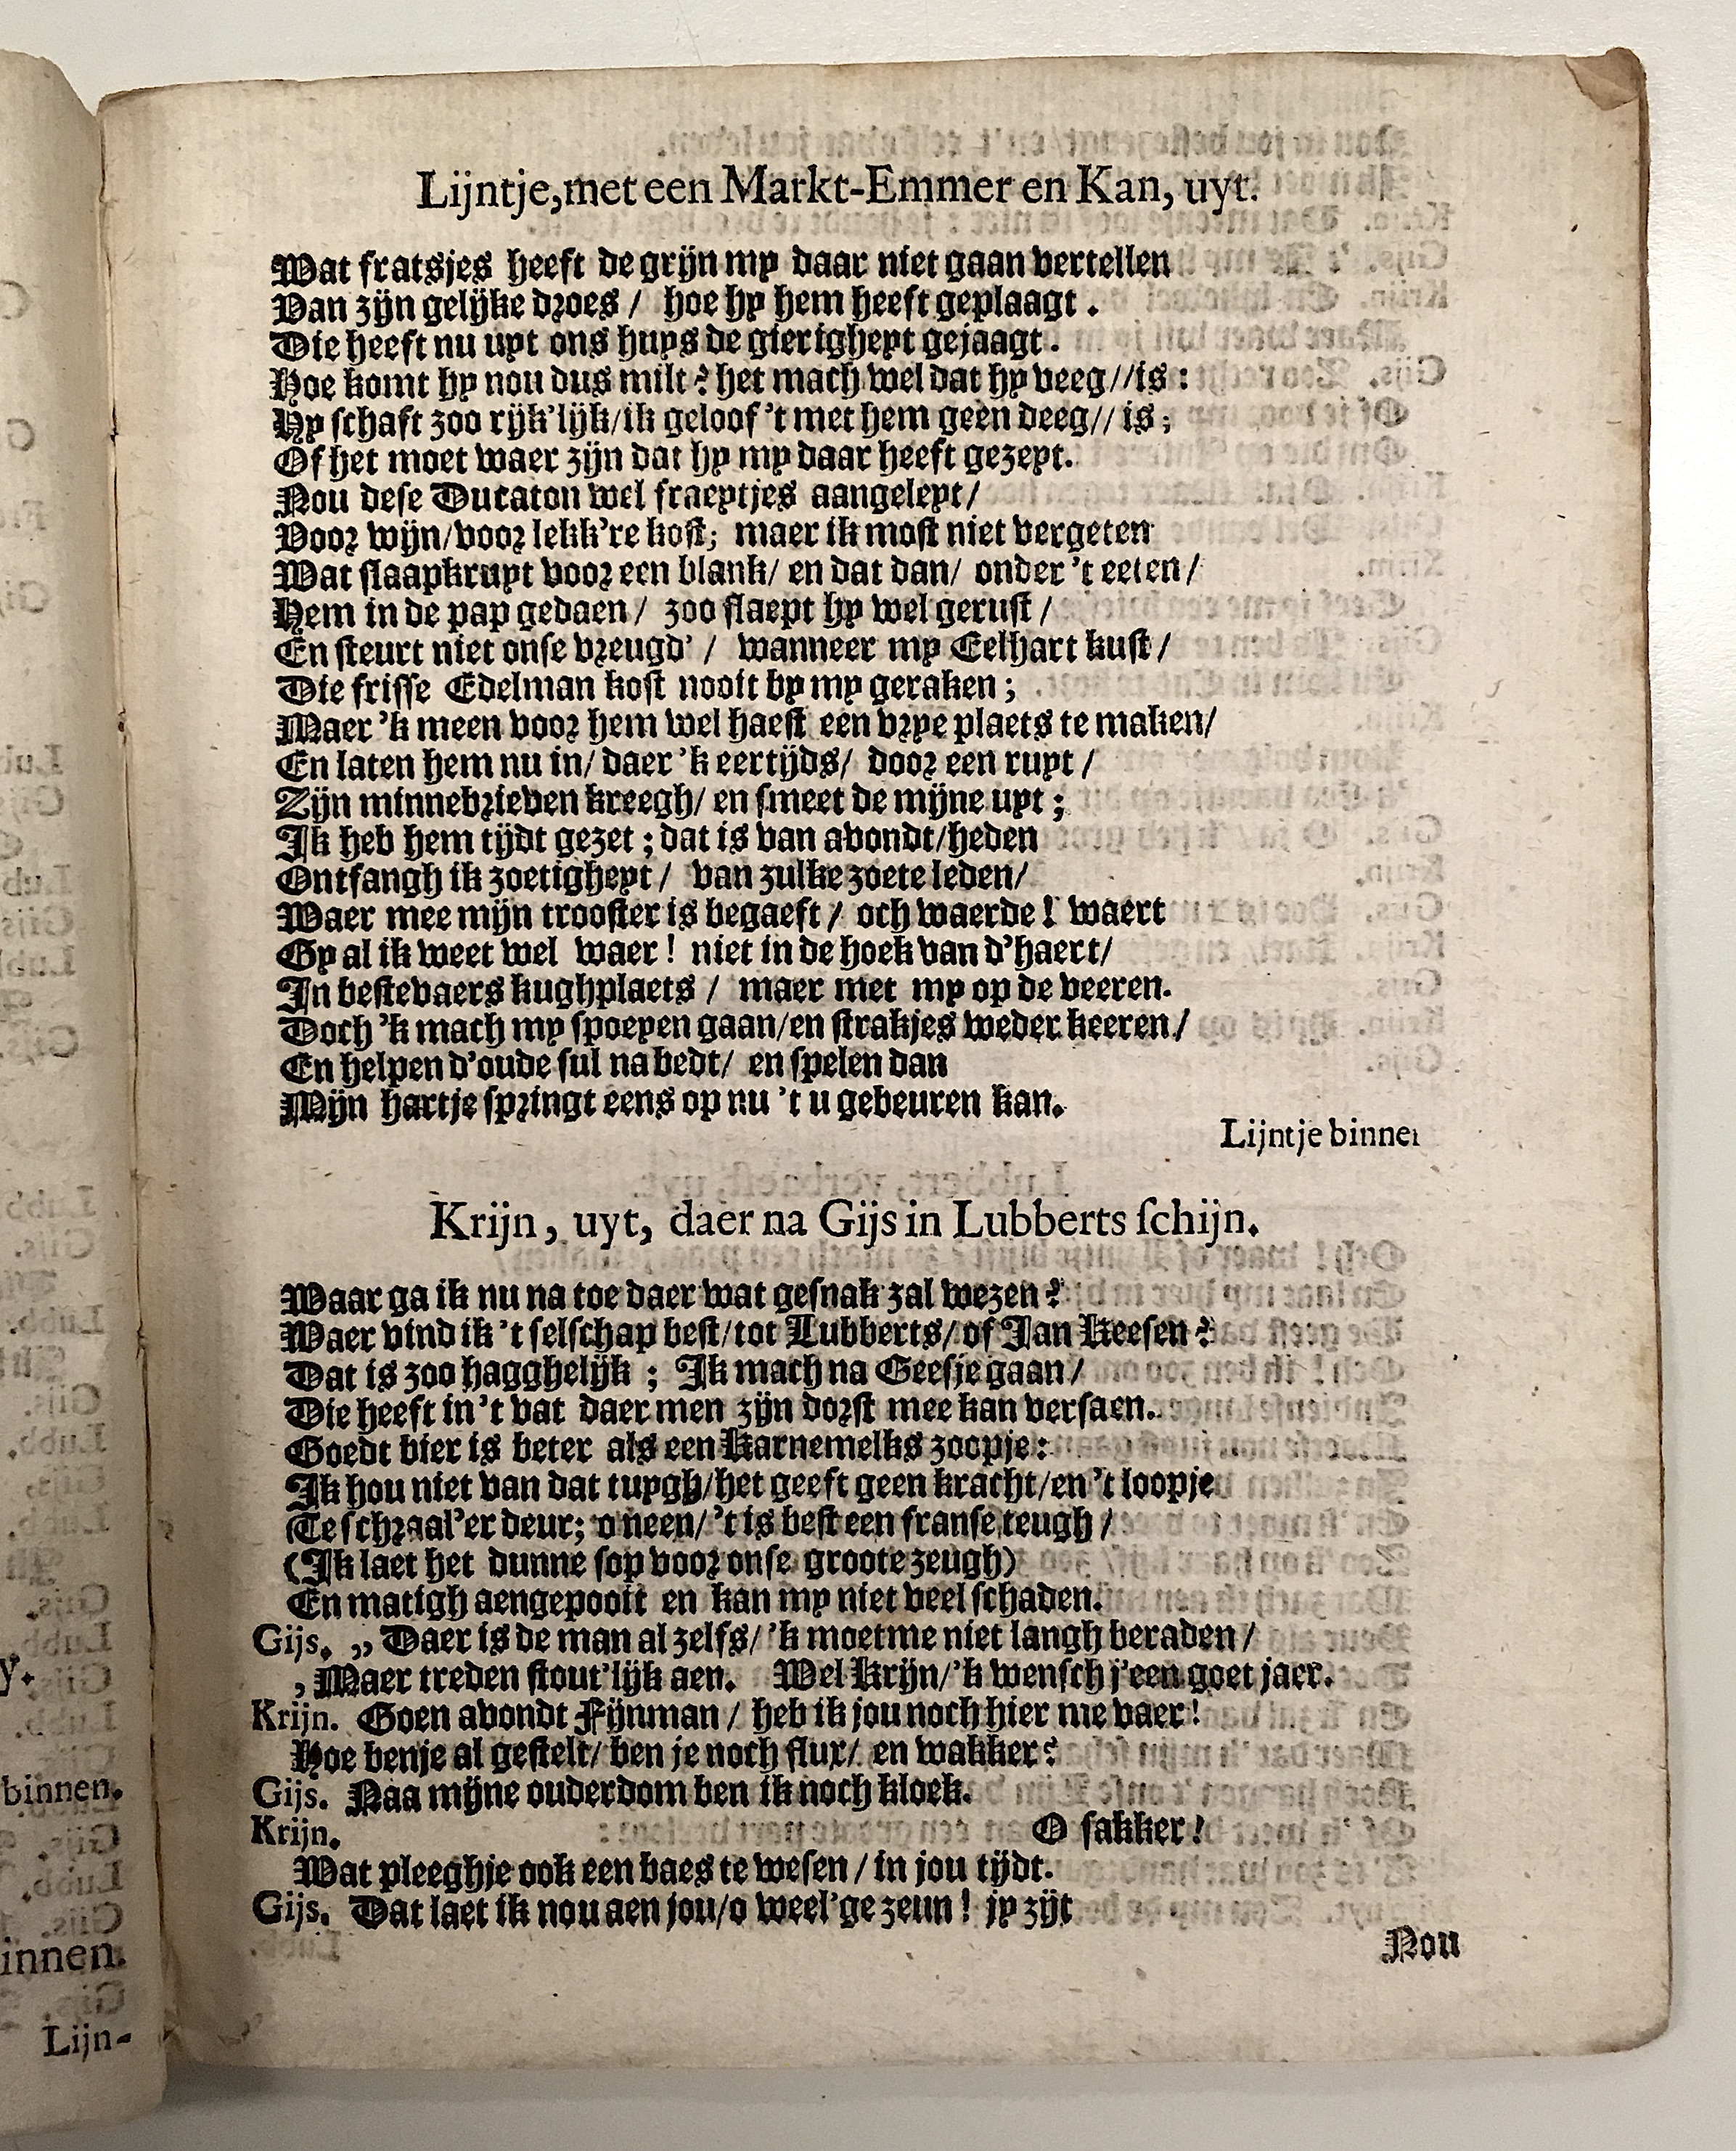 Lijntje, met een Markt-Emmer en Kan, uyt.
Wat fratsjes heeft de grijn my daar niet gaan vertellen
Van zijn gelijke droes / hoe hy hem heeft geplaagt.
Die heeft nu uyt ons huys de gierigheyt gejaagt.
Hoe komt hy nou dus milt? het mach wel dat hy veeg//is:
Hy schaft zoo rijk'lijk/ik geloof 't met hem geen deeg// is;
Of het moet waer zijn dat hy my daar heeft gezeyt.
Nou dese Ducaton wel fraeytjes aangeleyt/
Voor wijn/voor lekk're kost; maer ik most niet vergeten
Wat slaapkruyt voor een blank/ en dat dan/ onder 't eeten/
Hem in de pap gedaen/ zoo slaept hy wel gerust/
En steurt niet onse vreugd' / wanneer my Eelhart kust/
Die frisse Edelman kost nooit by my geraken;
Maer 'k meen voor hem wel haest een vrye plaets te maken/
En laten hem nu in/ daer 'k eertijds/ door een ruyt /
Zijn minnebrieven kreegh/ en smeet de mijne uyt;
Ik heb hem tijdt gezet; dat is van avondt/heden
Ontfangh ik zoetigheyt/ van zulke zoete leden/
Waer mee mijn trooster is begaeft / och waerde! waert
Gy al ik weet wel waer! niet in de hoek van d'haert/
In bestevaers kughplaets / maer met my op de veeren.
Doch 'k mach my spoeyen gaan/en strakjes weder keeren/
En helpen d'oude sul na bedt/ en spelen dan
Mijn hartje springt eens op nu 't u gebeuren kan.
Lijntje binnen
Krijn, uyt, daer na Gijs in Lubberts schijn.
Waar ga ik nu na toe daer wat gesnak zal wezen?
Waer vind ik 't selschap best/tot Lubberts/of Jan Keesen?
Dat is zoo hagghelijk; Ik mach na Geesje gaan/
Die heeft in 't vat daer men zijn dorst mee kan versaen.
Goedt bier is beter als een Karnemelks zoopje:
Ik hou niet van dat tuygh/het geeft geen kracht/en 't loopje
Te schraal'er deur; o neen/ 't is best een franse teugh /
(Ik laet het dunne sop voor onse groote zeugh)
En matigh aengepooit en kan my niet veel schaden.
Gijs. ,, Daer is de man al zelfs/ 'k moet me niet langh beraden/
, Maer treden stout'lijk aen. Wel Krijn/'k wensch j'een goet jaer.
Krijn. Goen avondt Fijnman / heb ik jou noch hier me vaer!
Hoe benje al gestelt/ ben je noch flux/ en wakker?
Gijs. Naa mijne ouderdom ben ik noch kloek.
Krijn. O sakker!
Wat pleeghje ook een baes te wesen / in jou tijdt.
Gijs. Dat laet ik nou aen jou/o weel'ge zeun! jy zijt
Nou
binnen.
innen.
Lijn-